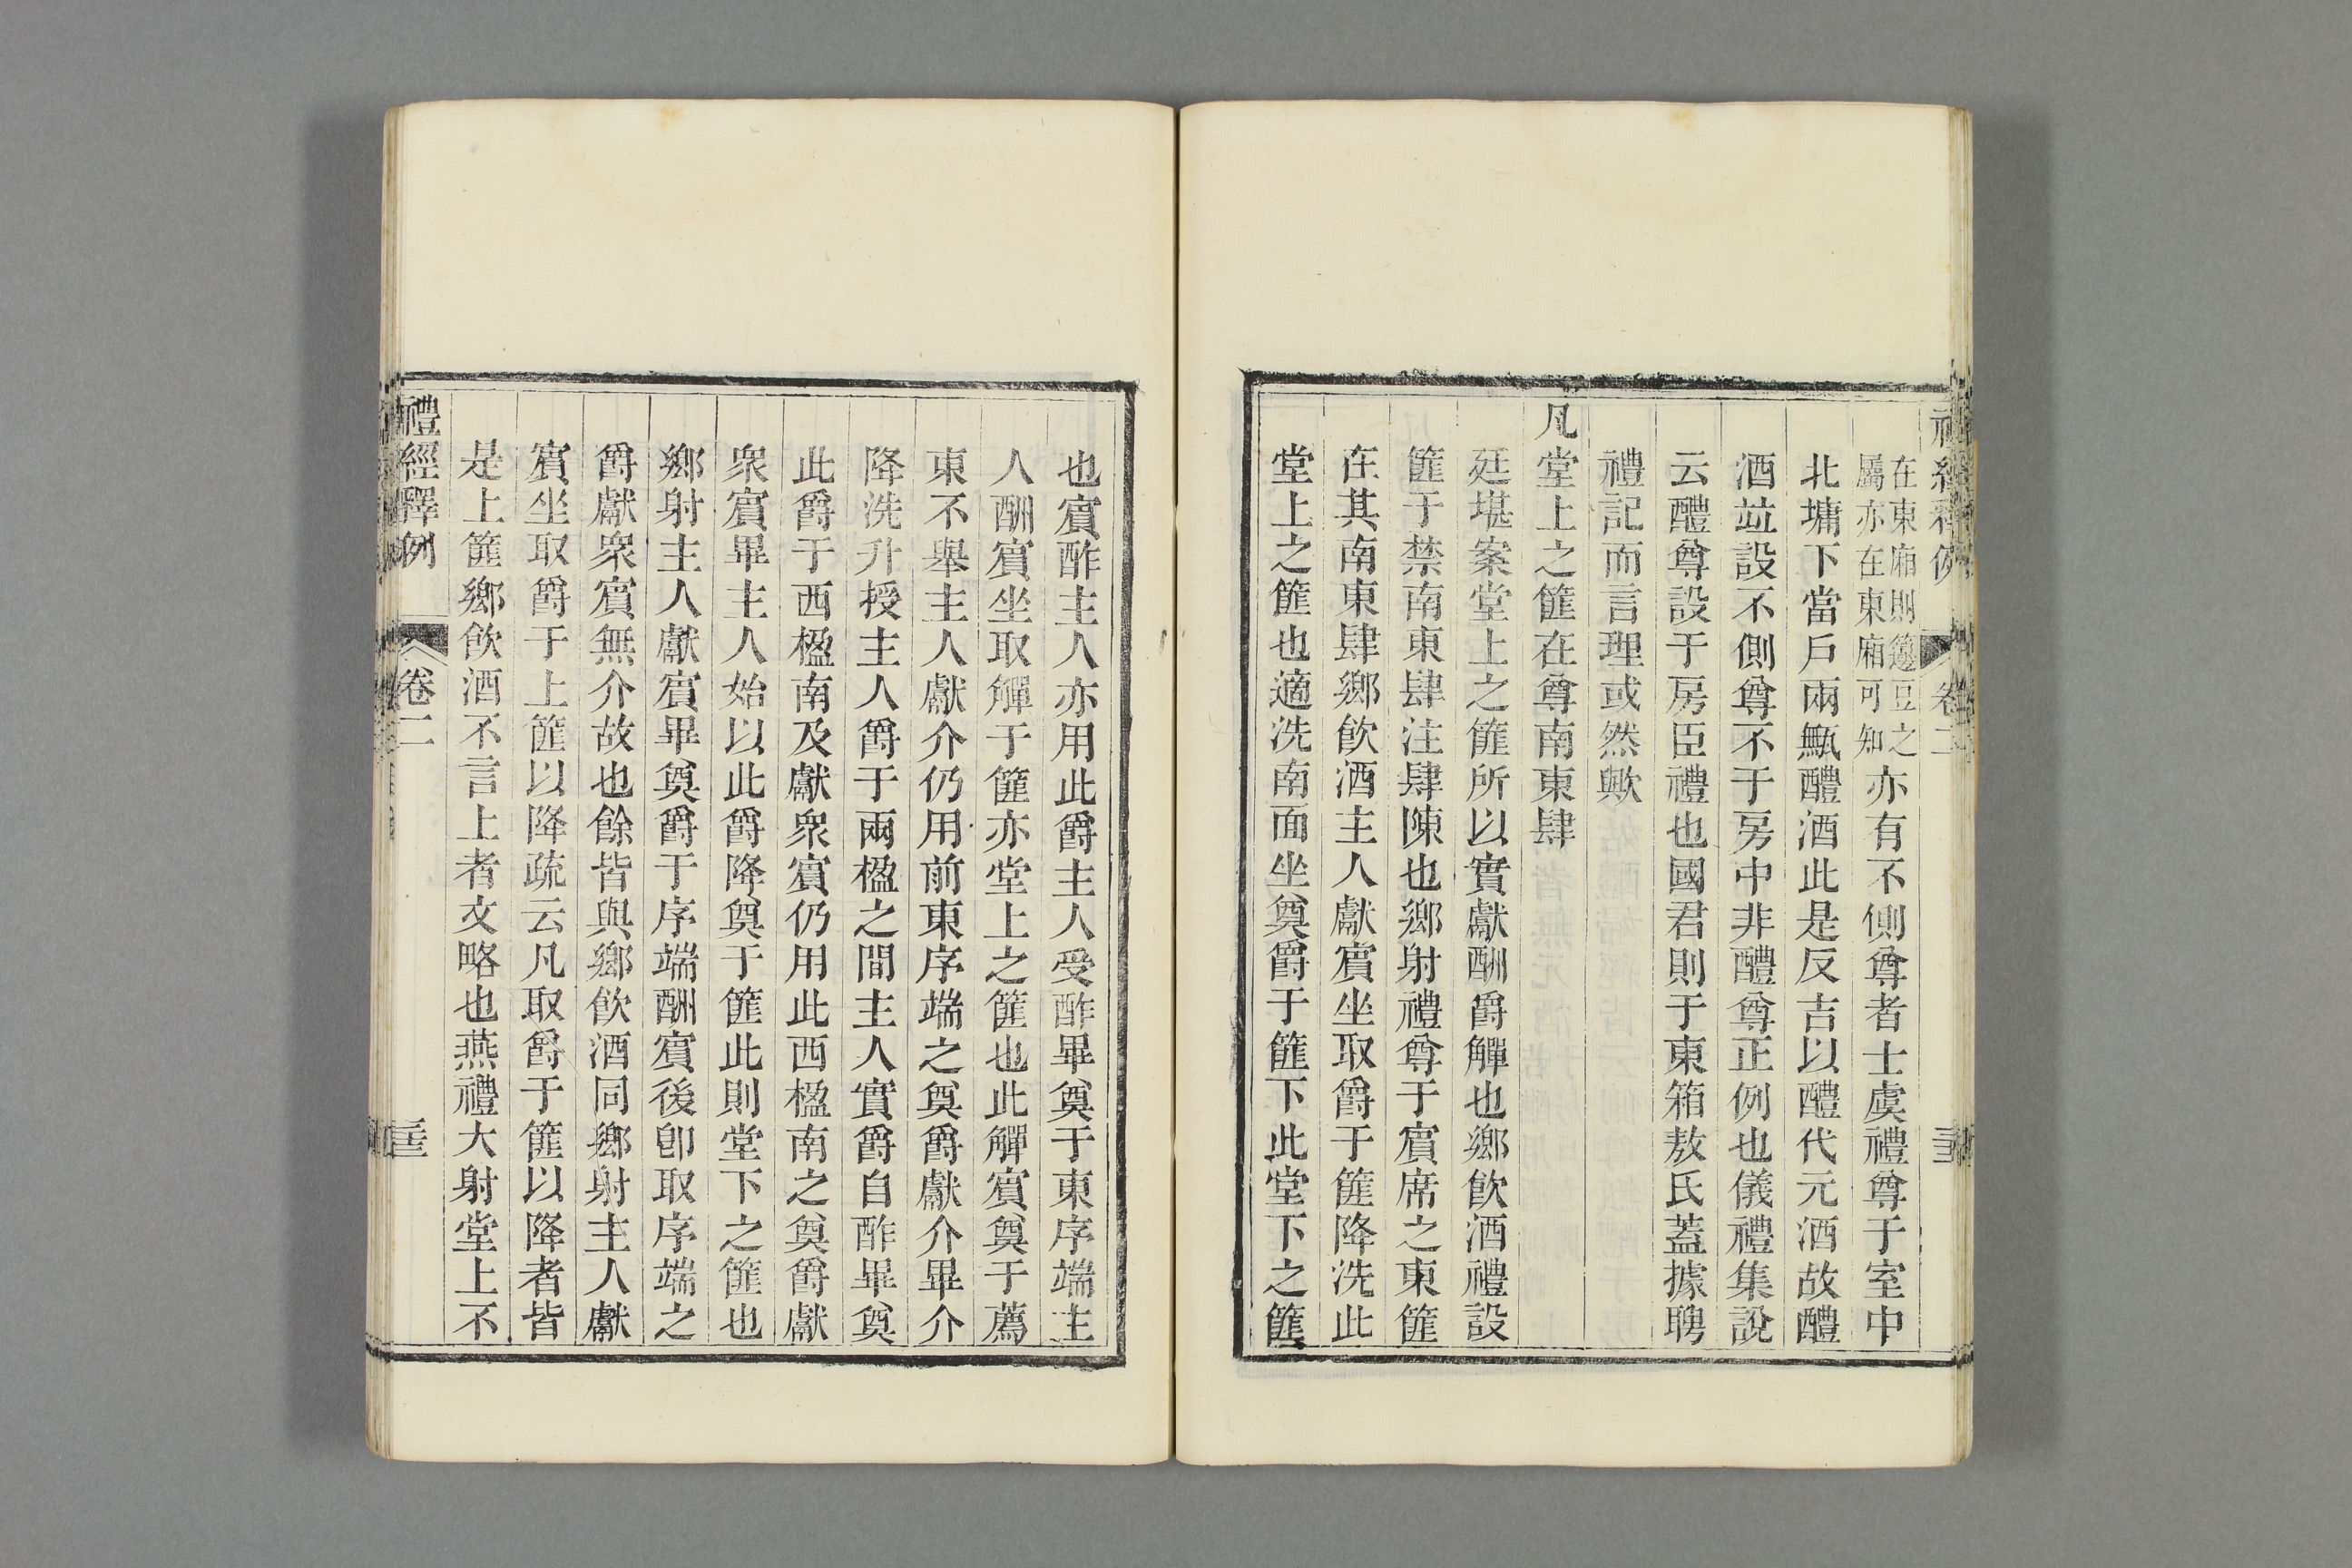 在東廂則籩豆之
屬亦在東廂可知
亦有不側尊者士虞禮尊于室中
北墉下當戶兩甒醴酒此是反吉以醴代元酒故醴
酒竝設不側尊不于房中非醴尊正例也儀禮集說
云醴尊設于房臣禮也國君則于東箱敖氏蓋據聘
禮記而言理或然歟
凡堂上之篚在尊南東肆
廷堪案堂上之篚所以實獻酬爵觶也鄉飲酒禮設
篚于禁南東肆注肆陳也鄉射禮尊于賓席之東篚
在其南東肆鄉飲酒主人獻賓坐取爵于篚降洗此
堂上之篚也適洗南面坐奠爵于篚下此堂下之篚
也賓酢主人亦用此爵主人受酢畢奠于東序端主
人酬賓坐取觶于篚亦堂上之篚也此觶賓奠于薦
東不舉主人獻介仍用前東序端之奠爵獻介畢介
降洗升授主人爵于兩楹之間主人實爵自酢畢奠
此爵于西楹南及獻眾賓仍用此西楹南之奠爵獻
眾賓畢主人始以此爵降奠于篚此則堂下之篚也
鄉射主人獻賓畢奠爵于序端酬賓後卽取序端之
爵獻眾賓無介故也餘皆與鄉飲酒同鄉射主人獻
賓坐取爵于上篚以降疏云凡取爵于篚以降者皆
是上篚鄉飲酒不言上者文略也燕禮大射堂上不
禮經釋例
卷二